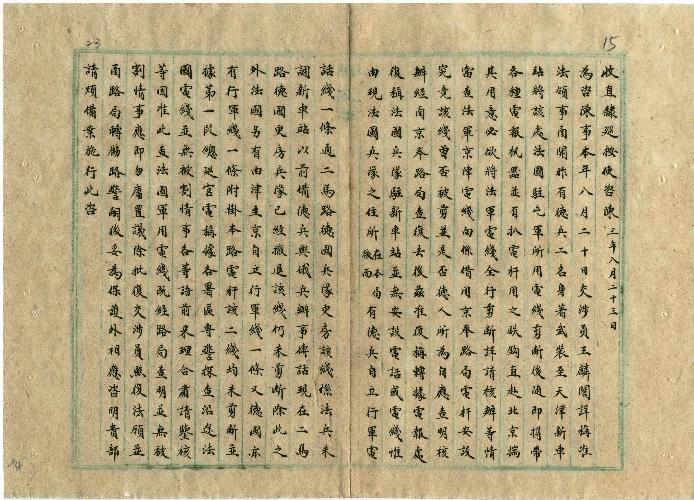 15
收直隸巡按使咨陳 三年八月二十三日
為咨陳事本年八月二十日交涉員王麟閣詳稱准
法領事函開昨有德兵二名身著武裝至天津新車
站將該處法國駐之軍所用電綫剪斷後隨即攜帶
各種電報机器並有扒電杆用之鉄鈎直赴北京揣
其用意必欲將法軍電綫全行剪斷詳請核辦等情
當查法軍京津電綫向係借用京奉路局電杆安設
究竟該綫曾否被剪並是否德人所為自應查明核
辦經函京奉路局查復去後茲准復稱轉據電報處
復稱法國兵隊駐新車站並無安設電話或電綫惟
由現法國兵隊之住所在本局後面有德兵自立行軍電
23
話綫一條通二馬路德國兵隊吏房該綫係法兵未
調新車站以前備德兵與俄兵辦事傳話現在二馬
路德國吏房兵隊已經撤退該綫仍未剪斷除此之
外法國另有由津至京自立行軍綫一條又德國亦
有行軍綫一條附掛本路電杆該二綫均未剪斷並
據第一段總巡官電稱據各署區弁警探查沿途法
國電綫並無被割情事各等語前來理合肅請鑒核
等因准此查法國軍用電綫既經路局查明並無被
割情事應即勿庸置議除批復交涉員照復法領並
函路局轉飭路警嗣後妥為保護外相應咨明貴部
請煩備案施行此咨